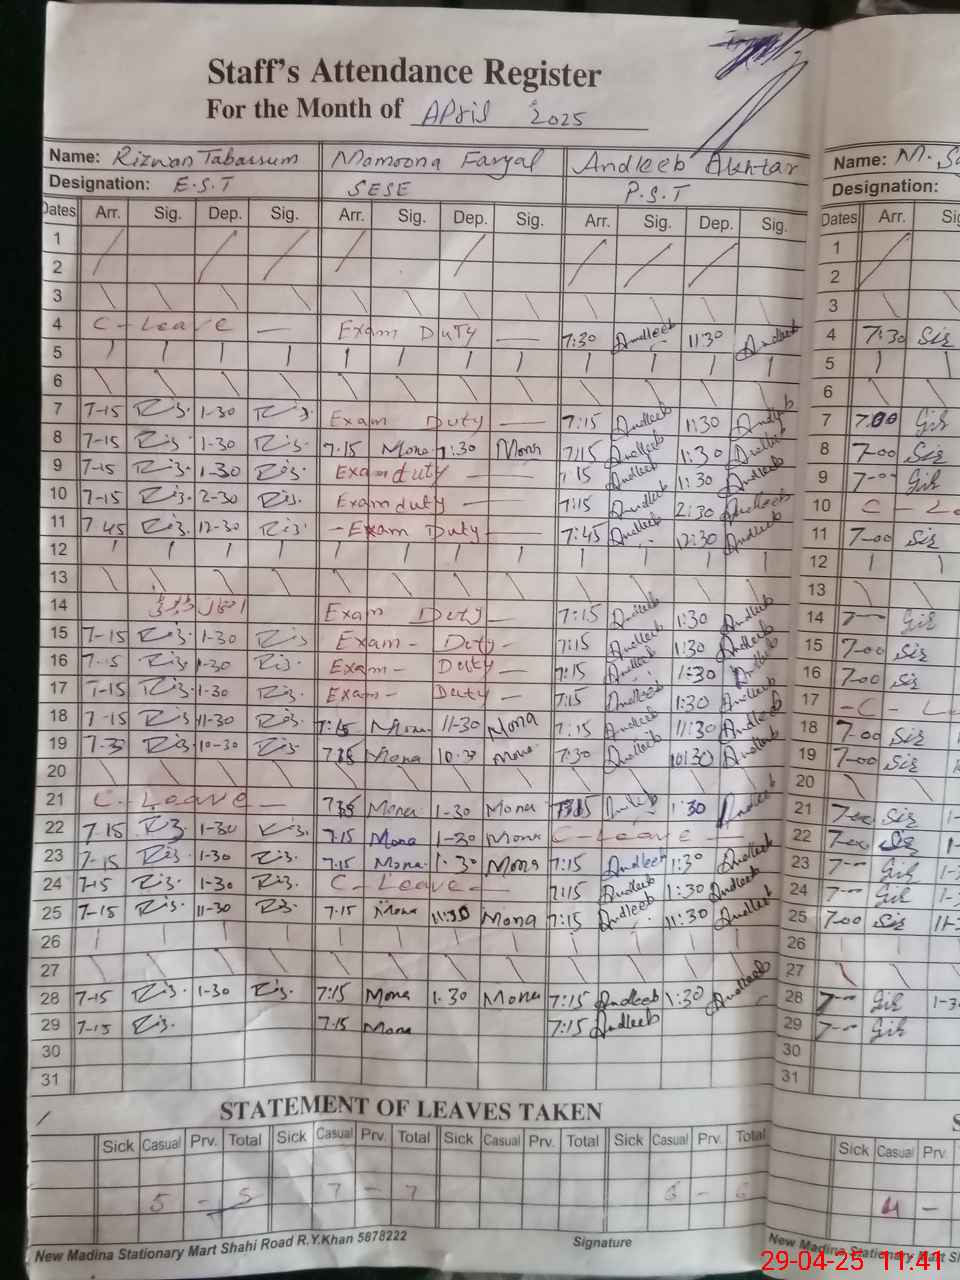 Staff's Attendance Register
For the Month of April 2025
Name: Rizwan Tabassum Mamoona Faryal Andleeb Akhtar Name: M.
Designation: E.S.T SESE P.S.T Designation:
Dates Arr. Sig. Dep. Sig. Arr. Sig. Dep. Sig. Arr. Sig. Dep. Sig. Dates Arr. Sig
1 1
2 2
3 3
4 C-Leave — Exam Duty — 7:30 Andleeb 11:30 Andleeb 4 7:30
5 5
6 6
7 7-15 Riz. 1-30 Riz. Exam Duty — 7:15 Andleeb 1:30 Andleeb 7 7:00
8 7-15 Riz. 1-30 Riz. 7:15 Mona 1:30 Mona 7:15 Andleeb 1:30 Andleeb 8 7-00
9 7-15 Riz. 1-30 Riz. Exam duty — 7:15 Andleeb 1:30 Andleeb 9 7--
10 7-15 Riz. 2-30 Riz. Exam duty — 7:15 Andleeb 2:30 Andleeb 10 C -
11 7 45 Riz. 12-30 Riz. -Exam Duty — 7:45 Andleeb 12:30 Andleeb 11 7-00
12 12
13 13
14 Exam Duty — 7:15 Andleeb 1:30 Andleeb 14 7—
15 7-15 Riz. 1-30 Riz Exam - Duty - 7:15 Andleeb 1:30 Andleeb 15 7-00
16 7-15 Riz. 1-30 Riz. Exam - Duty — 7:15 Andleeb 1:30 Andleeb 16 7-00
17 7-15 Riz. 1-30 Riz. Exam - Duty — 7:15 Andleeb 1:30 Andleeb 17 -C-
18 7-15 Riz 11-30 Riz. 7:15 Mona 11-30 Mona 7:15 Andleeb 11:30 Andleeb 18 7-00
19 7-30 Riz 10-30 Riz. Mona 10-30 Mona 7:30 Andleeb 10:30 Andleeb 19 7-00
20 20
21 C-Leave — Mona 1-30 Mona Andleeb 1:30 Andleeb 21 7-00
22 7-15 Riz 1-30 Riz. 7:15 Mona 1-30 Mona C-Leave — 22 7-00
23 7-15 Riz. 1-30 Riz. 7:15 Mona 1-30 Mona 7:15 Andleeb 1:30 Andleeb 23 7--
24 7-15 Riz. 1-30 Riz. C-Leave — 7:15 Andleeb 1:30 Andleeb 24 7--
25 7-15 Riz. 11-30 Riz. 7:15 Mona 11:30 Mona 7:15 Andleeb 11:30 Andleeb 25 7-00
26 26
27 27
28 7-15 Riz. 1-30 Riz. 7:15 Mona 1.30 Mona 7:15 Andleeb 1:30 Andleeb 28 7--
29 7-15 Riz. 7:15 Mona 7:15 Andleeb 29 7--
30 30
31 31
STATEMENT OF LEAVES TAKEN
Sick Casual Prv. Total Sick Casual Prv. Total Sick Casual Prv. Total Sick Casual Prv. Total Sick Casual Prv.
5 - 5 7 - 7 6 - 6 4 -
New Madina Stationary Mart Shahi Road R.Y.Khan 5878222 Signature New Madina Stationary Mart
29-04-25 11:41